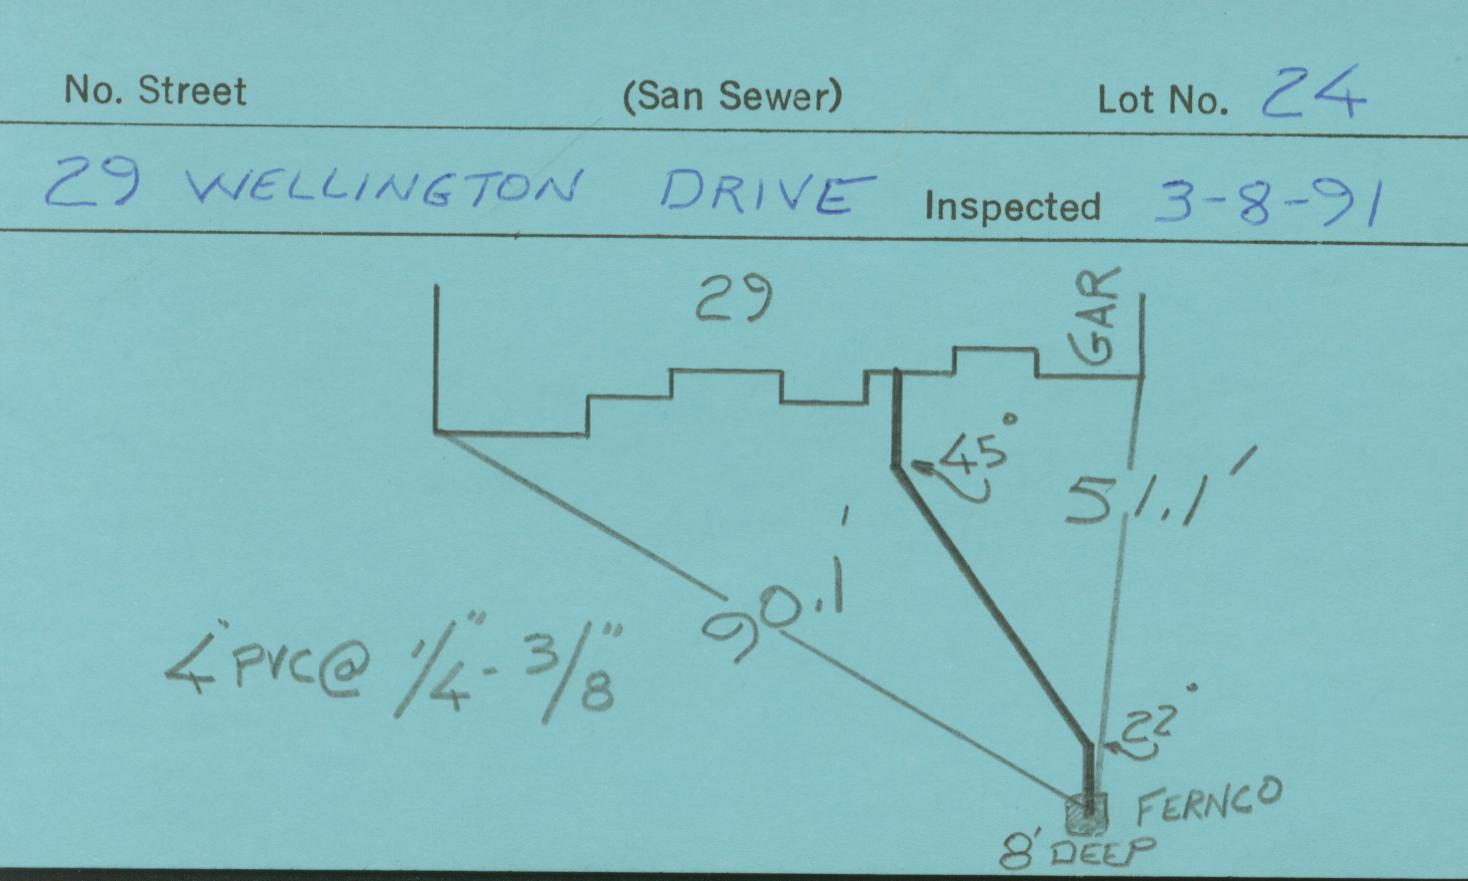 No. Street (San Sewer) Lot No. 24
29 WELLINGTON DRIVE Inspected 3-8-91
29
GAR
45°
51.1'
90.1'
4" PVC @ 1/4" - 3/8"
22°
FERNCO
8' DEEP